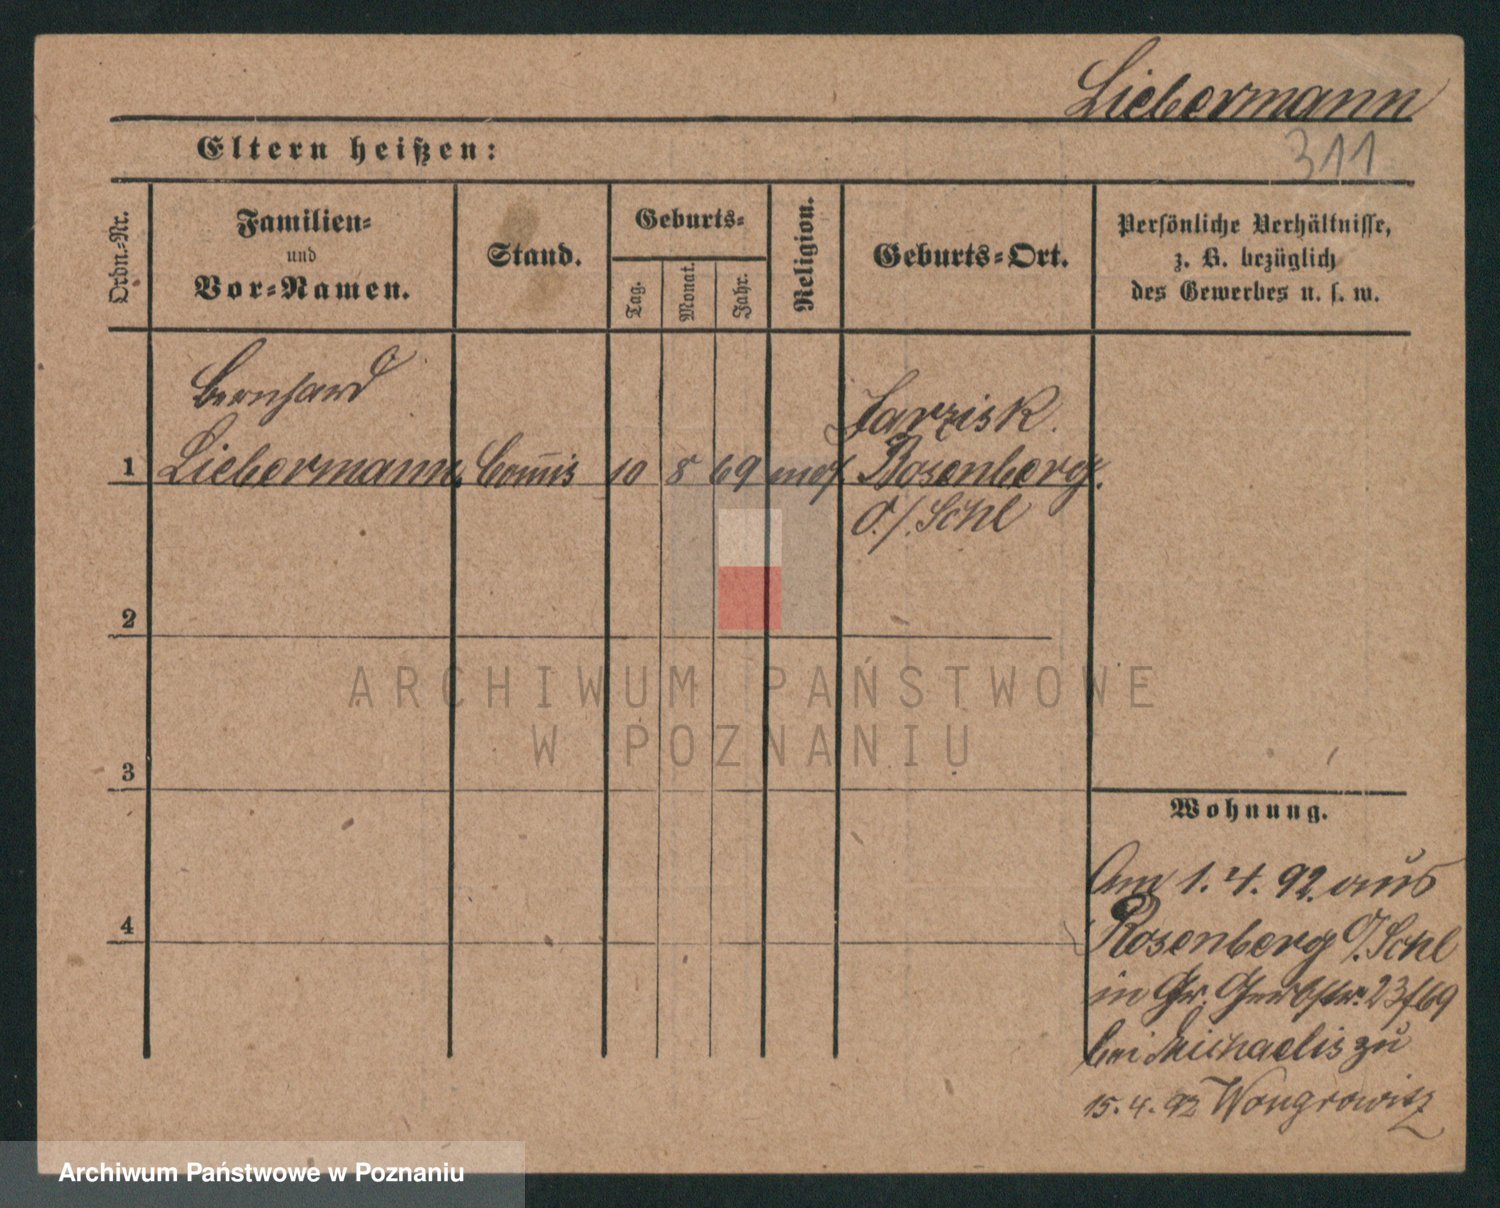 Liebermann
311
Eltern heißen:
Ordn.-Nr.
Familien-
und
Vor-Namen.
Stand.
Geburts-
Tag.
Monat.
Jahr.
Religion.
Geburts-Ort.
Persönliche Verhältnisse,
z. B. bezüglich
des Gewerbes u. s. w.
Bernhard
1 Liebermann Commis 10 8 69 mos.
Rosenberg.
O./Schl
2
3
4
Wohnung.
Am 1.4.92. aus
Rosenberg O/Schl
in Gr. Gerberstr. 23/69
bei Michaelis zu
15.4.92 Wongrowitz
ARCHIWUM PAŃSTWOWE
W POZNANIU
Archiwum Państwowe w Poznaniu